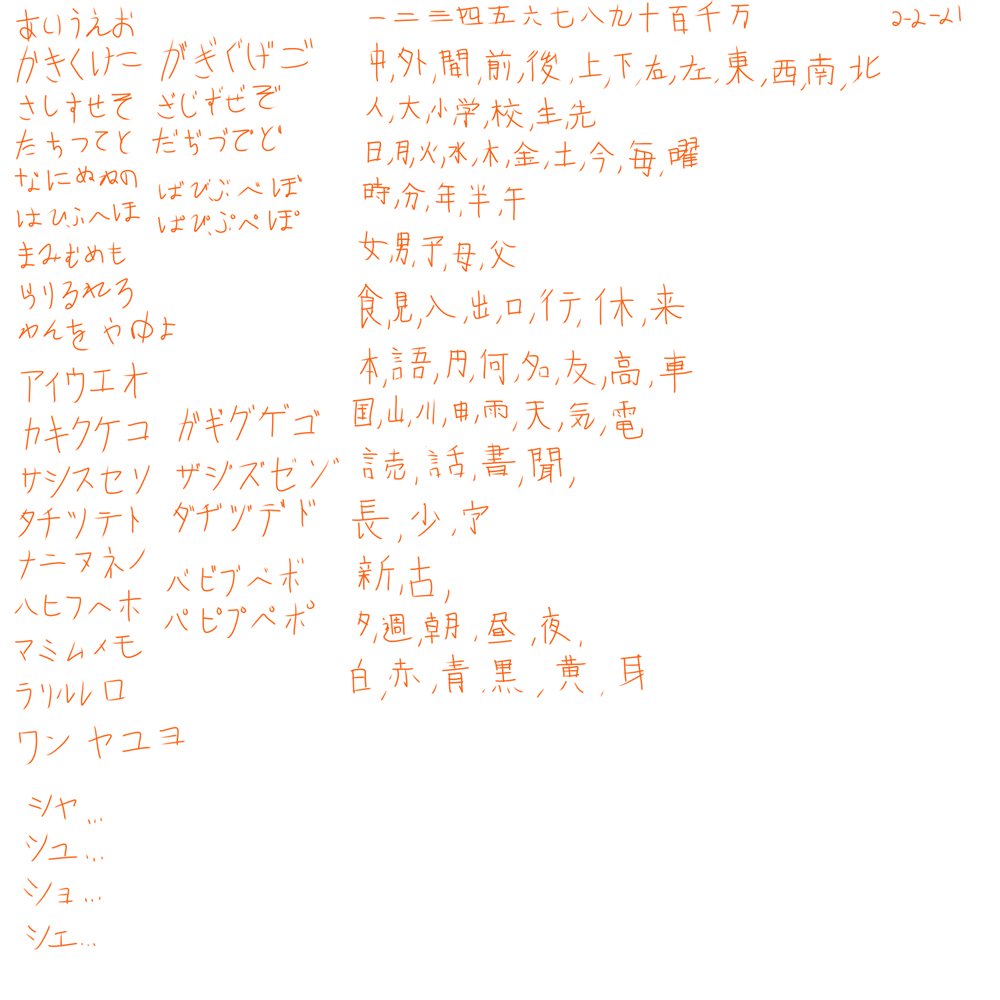 あいうえお
かきくけこ がぎぐげご
さしすせそ ざじずぜぞ
たちつてと だぢづでど
なにぬねの
はひふへほ ばびぶべぼ
ぱぴぷぺぽ
まみむめも
らりるれろ
わんを やゆよ
アイウエオ
カキクケコ ガギグゲゴ
サシスセソ ザジズゼゾ
タチツテト ダヂヅデド
ナニヌネノ
ハヒフヘホ バビブベボ
パピプペポ
マミムメモ
ラリルレロ
ワン ヤユヨ
シャ...
シュ...
ショ...
シェ...
一二三四五六七八九十百千万
2-2-21
中,外,間,前,後,上,下,右,左,東,西,南,北
人,大,小,学,校,生,先
日,月,火,水,木,金,土,今,毎,曜
時,分,年,半,午
女,男,子,母,父
食,見,入,出,口,行,休,来
本,語,円,何,名,友,高,車
国,山,川,申,雨,天,気,電
読,話,書,聞,
長,少,字
新,古,
夕,週,朝,昼,夜,
白,赤,青,黒,黄,耳